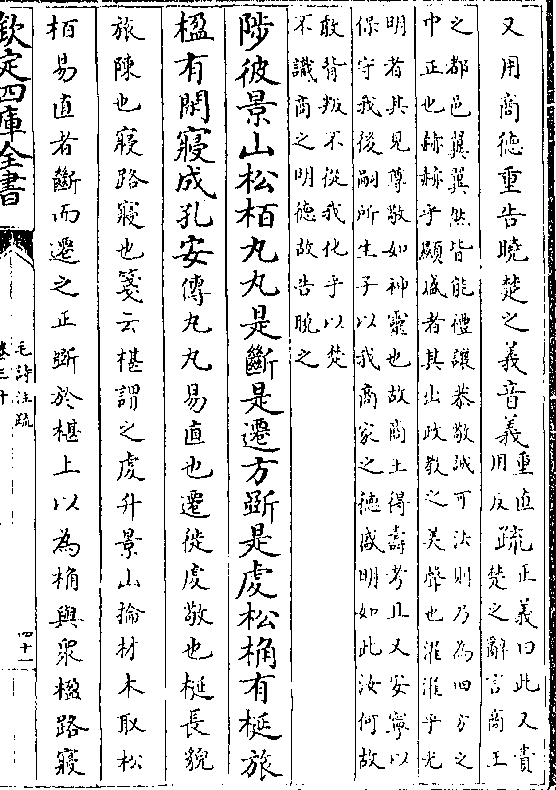 又用商德重告曉楚之義音義重直用反疏正義曰此又責楚之辭言商王
之都邑翼翼然皆能禮讓恭敬誠可法則乃為四方之
中正也赫赫乎顯盛者其出政教之美聲也濯濯乎光
明者其見尊敬如神靈也故商王得壽考且又安寧以
保守我後嗣所生子以我商家之德盛明如此汝何故
敢背叛不從我化乎以楚
不識商之明德故告曉之
陟彼景山松栢丸丸是斷是遷方斲是䖍松桷有梴旅
楹有閑寢成孔安傳丸丸易直也遷徙䖍敬也梴長貌
旅陳也寢路寢也箋云椹謂之䖍升景山掄材木取松
栢易直者斷而遷之正斲於椹上以為桷與衆楹路寢
欽定四庫全書
毛詩注疏
卷三十
四十一